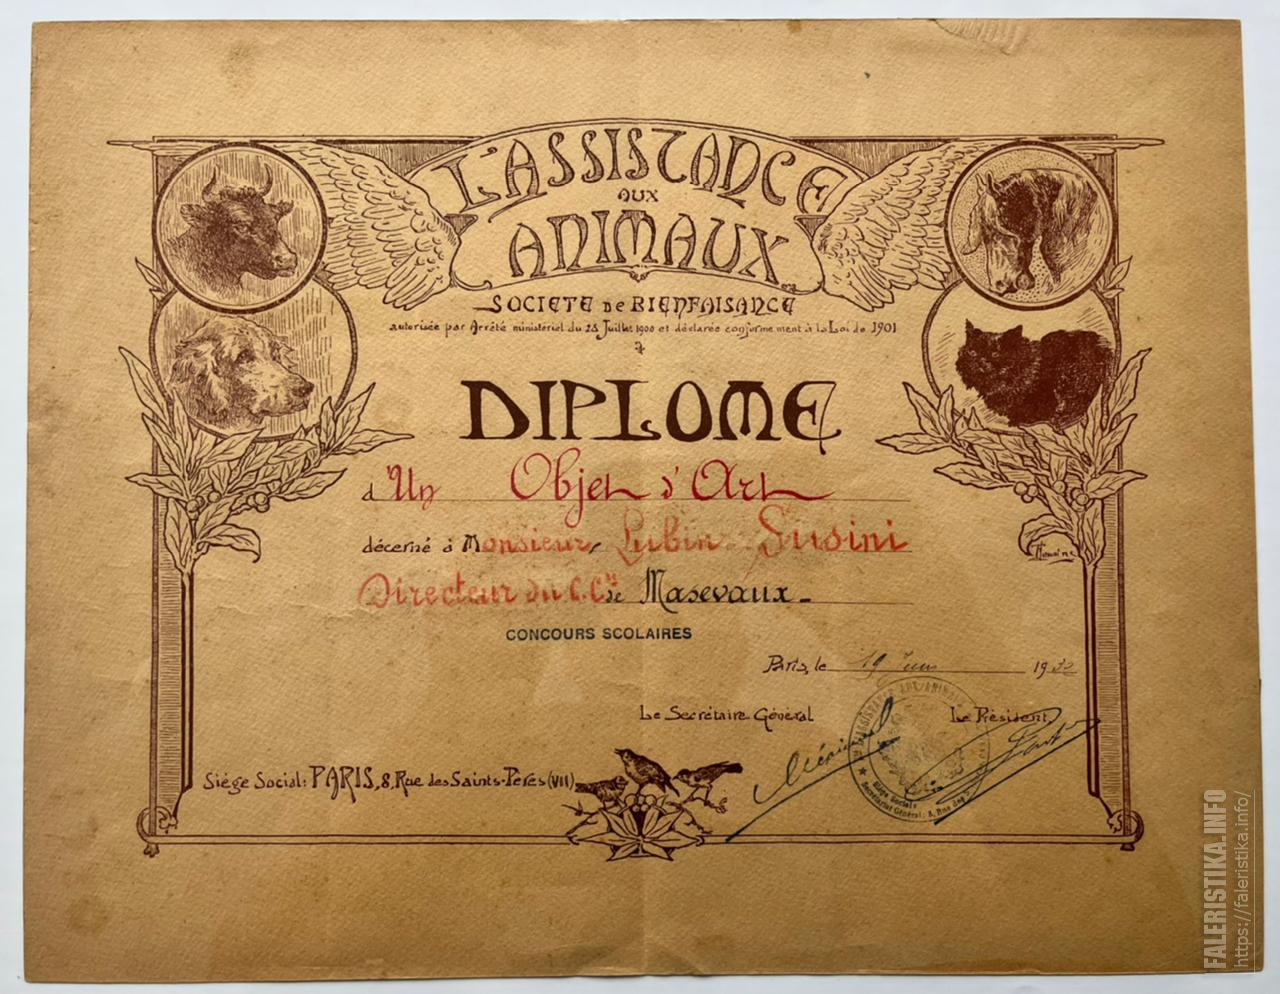 L'ASSISTANCE
AUX
ANIMAUX
SOCIETE DE BIENFAISANCE
autorisée par Arrêté ministériel du 28 Juillet 1900 et déclarée conformement à la Loi de 1901
DIPLOME
d'Un Objet d'Art
décerné à Monsieur Lubin Susini
Directeur du C. Cre de Masevaux
CONCOURS SCOLAIRES
Paris, le 19 Juin 1932
Le Secrétaire Général Le Président
ASSISTANCE AUX ANIMAUX
Siège Social:
Secrétariat Général: 8, Rue des
Siége Social: PARIS, 8, Rue des Saints-Pères (VII)
FALERISTIKA.INFO
https://faleristika.info/